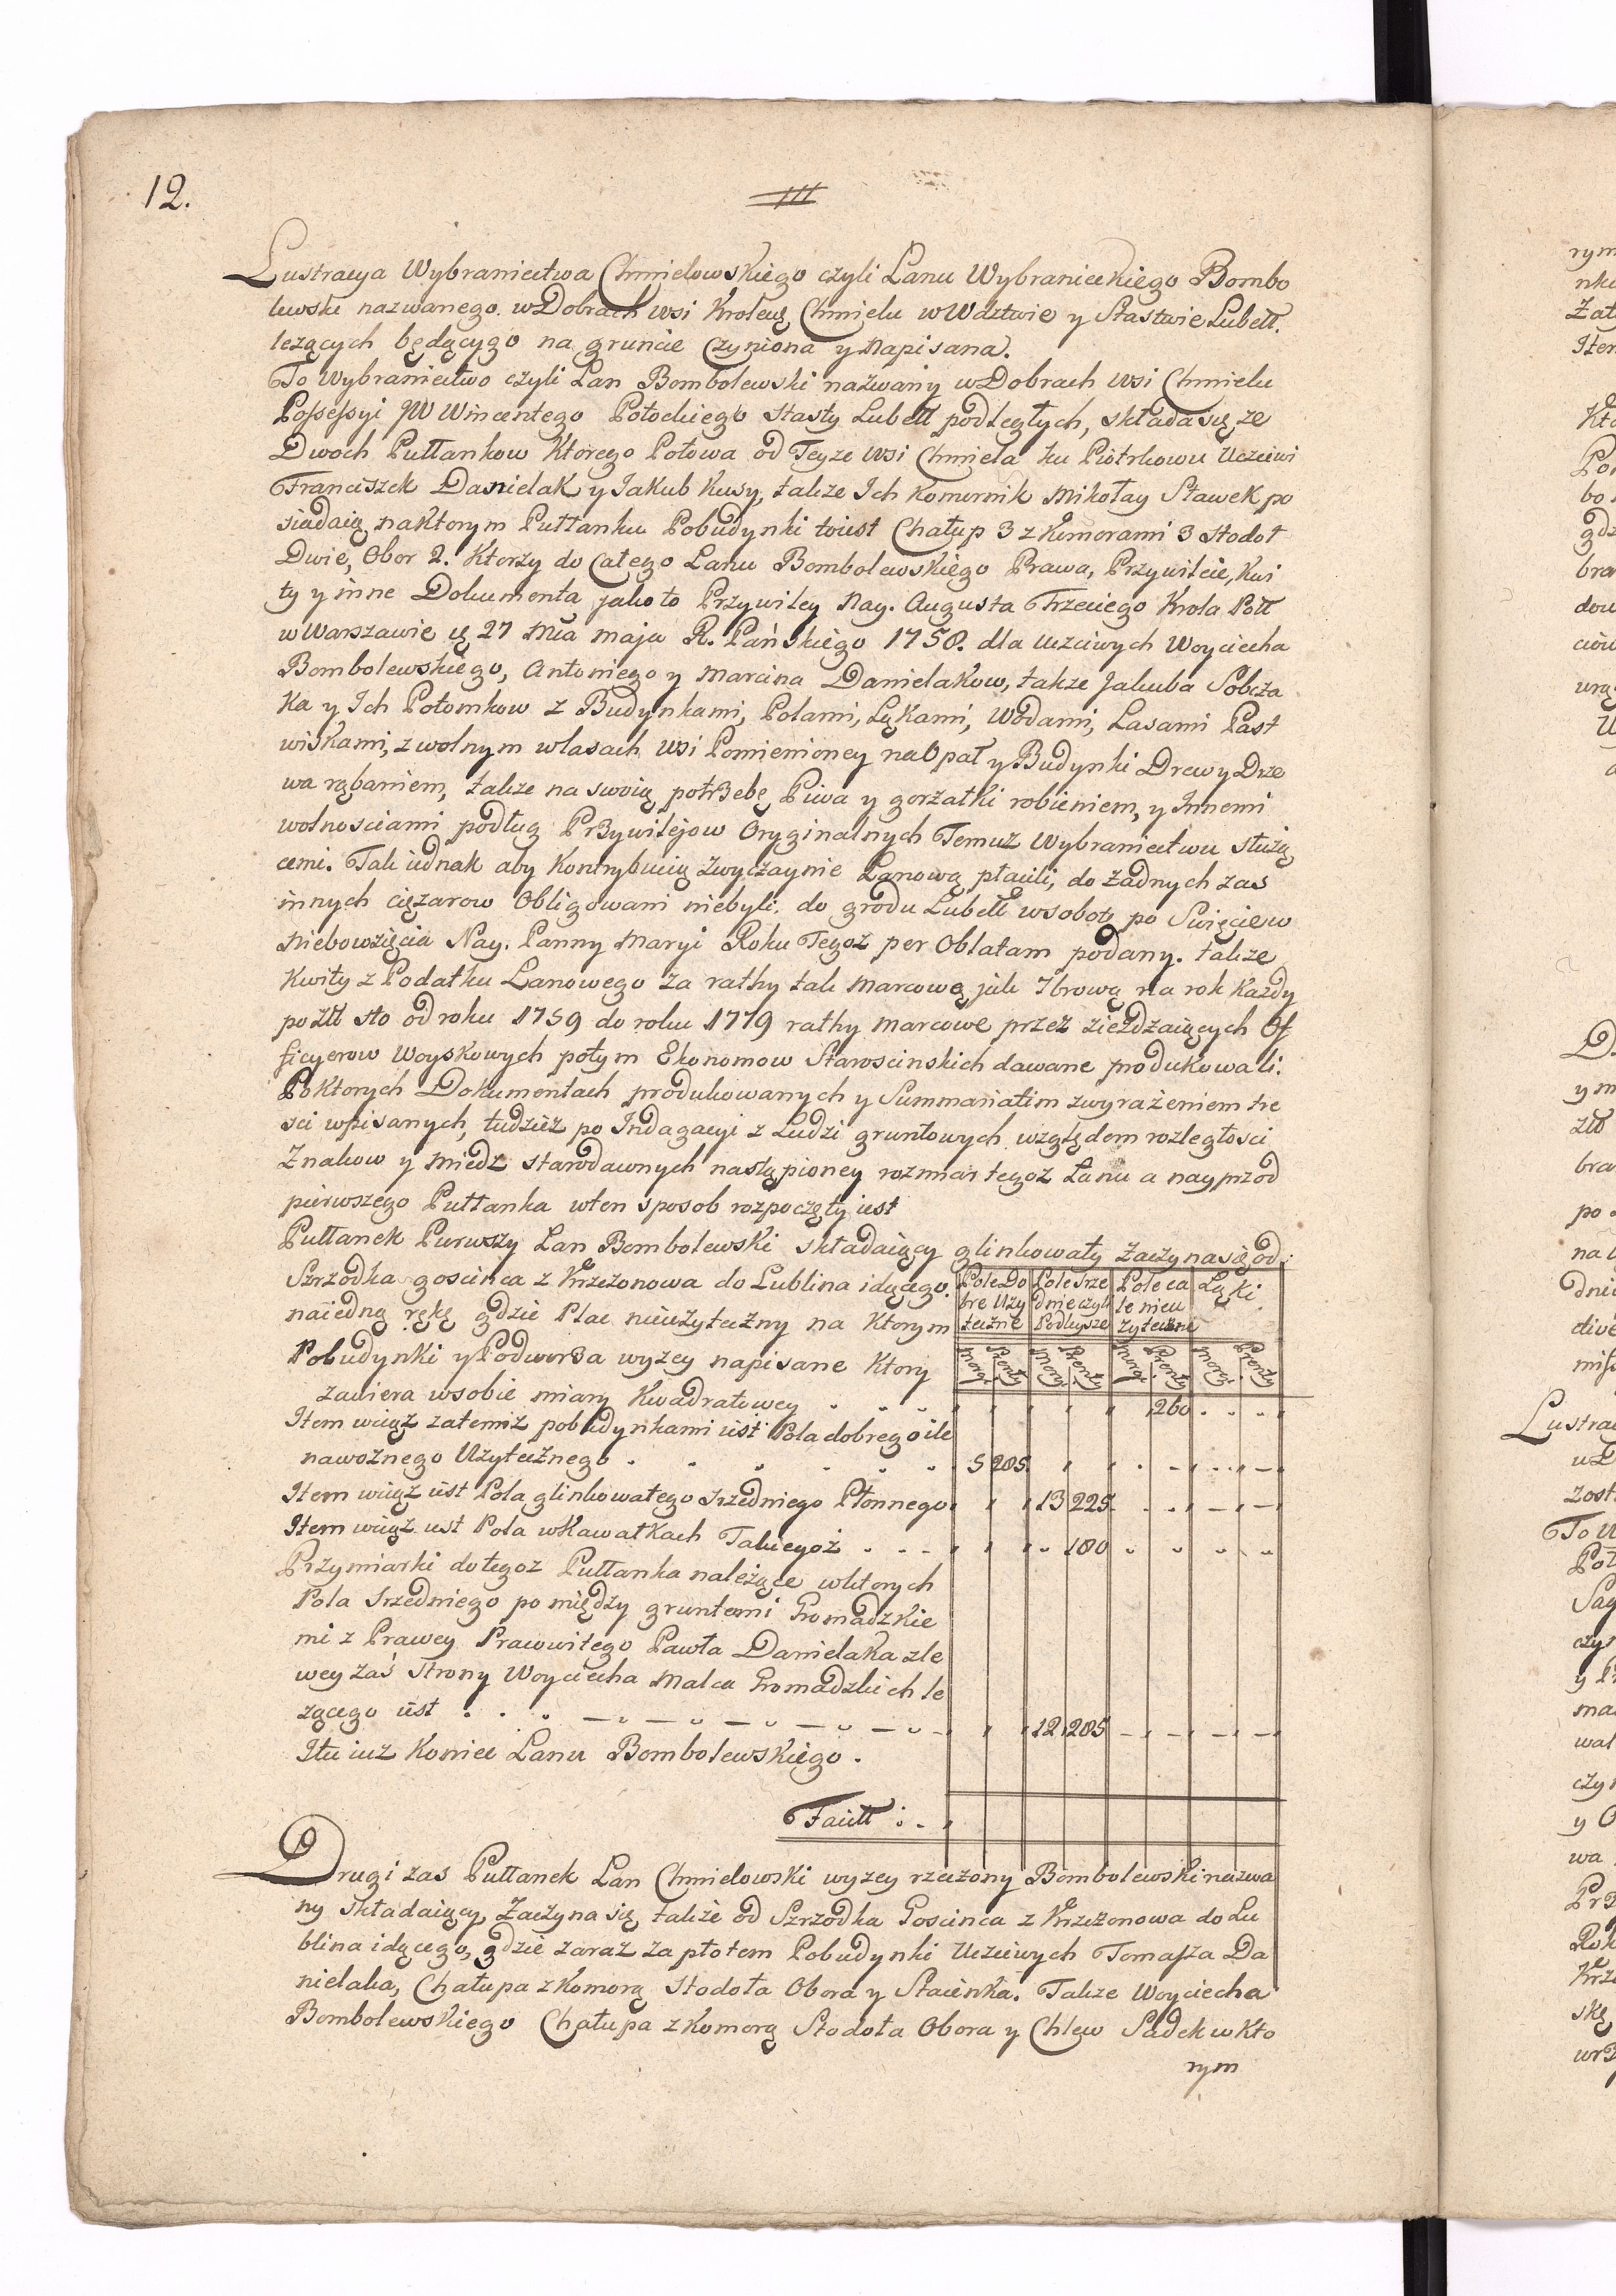 12.
III
Lustracya Wybraniectwa Chmielowskiego czyli Lanu Wybranieckiego Bombo
lewski nazwanego w Dobrach wsi Krolewę Chmielu w Wdztwie y Stastwie Lubell.
leżących będącygo na gruncie Czyniona y Napisana.
To Wybraniectwo czyli Lan Bombolewski nazwany w Dobrach wsi Chmielu
Possessyi JW Wincentego Potockiego Stasty Lubell podległych, składa się ze
Dwoch Pułłankow Ktorego Połowa od Teyze wsi Chmiela ku Piotrkowu Uczciwi
Franciszek Danielak y Jakub Kusy, takze Ich Komornik Mikołay Sławek po
siadaią na Ktorym Pułłanku Pobudynki toiest Chałup 3 z Komorami 3 Stodoł
Dwie, Obor 2. Ktorzy do Całego Lanu Bombolewskiego Prawa, Przywileie, Kwi
ty y inne Dokumenta jako to Przywiley Nay. Augusta Trzeciego Krola Poll
w Warszawie ę 27 Mia Maja R. Pańskiego 1758. dla Uczciwych Woyciecha
Bombolewskiego, Antoniego y Marcina Danielakow, takze Jakuba Sobcza
Ka y Ich Potomkow z Budynkami, Polami, Łąkami, Wodami, Lasami Past
wiskami, z wolnym w lasach wsi Pomienioney na Opał y Budynki Drewy Drze
wa rąbaniem, takze na swoią potrzebę Piwa y gorzałki robieniem, y Innemi
wolnosciami podług Przywilejow Oryginalnych Temuz Wybraniectwu służą
cemi. Tak iednak aby Kontrybucią zwyczaynie Łanową płacili, do żadnych zas
innych ciężarow Obligowani niebyli, do grodu Lubell w sobotę po Swięciew
Niebowzięcia Nay. Panny Maryi Roku Tegoz per Oblatam podany. takze
Kwity z Podatku Lanowego za rathy tak Marcową jak 7brową na rok Każdy
po Złł sto od roku 1759 do roku 1779 rathy Marcowe przez zieżdzaiących Of
ficyerow Woyskowych potym Ekonomow Staroscinskich dawane produkowali.
Po Ktorych Dokumentach produkowanych y Summariatim z wyrażeniem tre
sci wpisanych, tudziez po Indagacyi z Ludzi gruntowych względem rozległosci
Znakow y Miedz starodawnych nastąpioney rozmiar tegoz Lanu a nayprzod
pierwszego Pułłanka w ten sposob rozpoczęty iest
Pułłanek Pierwszy Lan Bombolewski składaiący glinkowaty Zaczyna się od:
Szrzodka goscinca z Krzczonowa do Lublina idącego.
na iedną rękę gdzie Plac nieużyteczny na Ktorym
Pobudynki y Podworza wyzey napisane Ktory
zawiera w sobie miary Kwadratowey
Pole Do Pole Srze Pole ca Łąki
bre Uzy dnie czyli le nieu
teczne Podleysze zyteczne
Morgi Prenty Morgi Prenty Morgi Prenty Morgi Prenty
260
Item wciąż za temiz pobudynkami iest Pola dobrego ile
nawoznego Użytecznego 5 285
Item wciąż iest Pola glinkowatego Srzedniego Płonnego 13 225
Item wciąż iest Pola w Kawałkach Takiegoż 180
Przymiarki do tegoz Pułłanka należące w ktorych
Pola Srzedniego pomiędzy gruntemi Gromadzkie
mi z Prawey Prawowitego Pawła Danielaka z le
wey zaś Strony Woyciecha Malca Gromadzkich le
zącego iest 12 285
I tu iuz Koniec Lanu Bombolewskiego.
Faciłł
Drugi zas Pułłanek Lan Chmielowski wyzey rzeczony Bombolewski nazwa
ny składaiący, Zaczyna się także od Szrzodka Goscinca z Krzczonowa do Lu
blina idącego, gdzie zaraz za płotem Pobudynki Uczciwych Tomasza Da
nielaka, Chałupa z Komorą Stodoła Obora y Staienka. Takze Woyciecha
Bombolewskiego Chałupa z Komorą Stodoła Obora y Chlew Sadek w Kto
rym